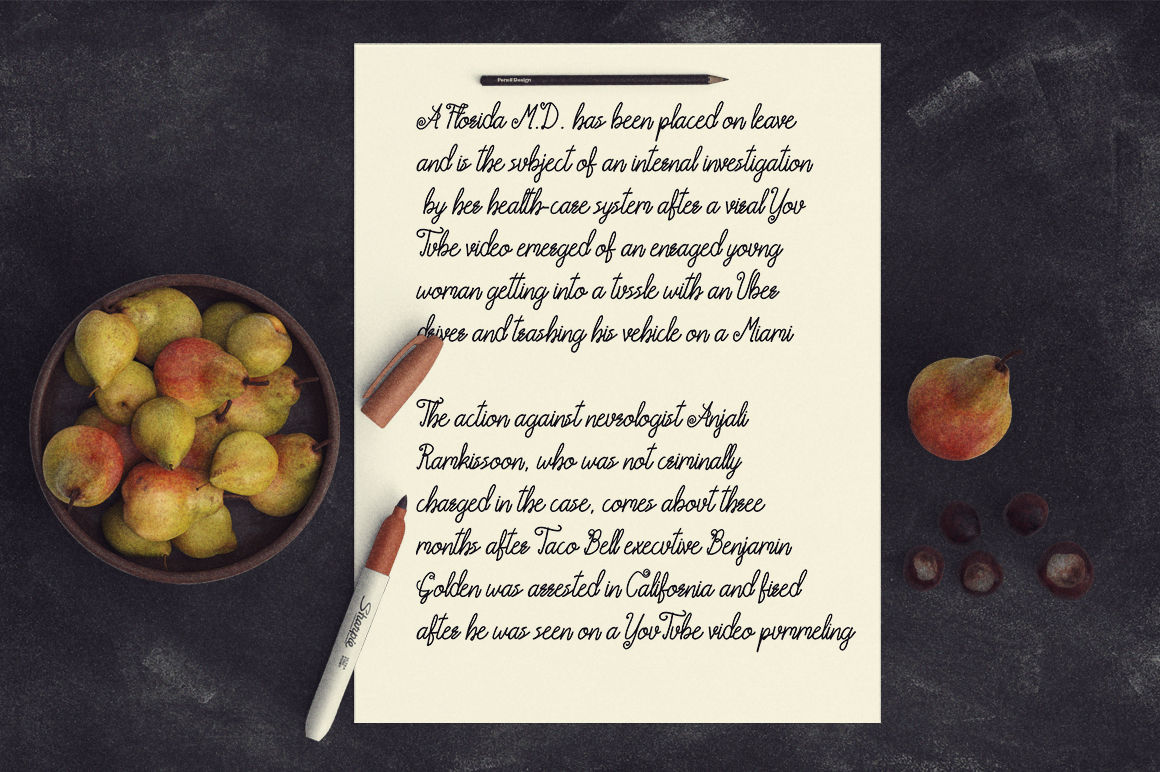 Pencil Design
A Florida M.D. has been placed on leave
and is the subject of an internal investigation
by her health-care system after a viral You
Tube video emerged of an enraged young
woman getting into a tussle with an Uber
driver and trashing his vehicle on a Miami
The action against neurologist Anjali
Ramkissoon, who was not criminally
charged in the case, comes about three
months after Taco Bell executive Benjamin
Golden was arrested in California and fired
after he was seen on a YouTube video pummeling
Sharpie